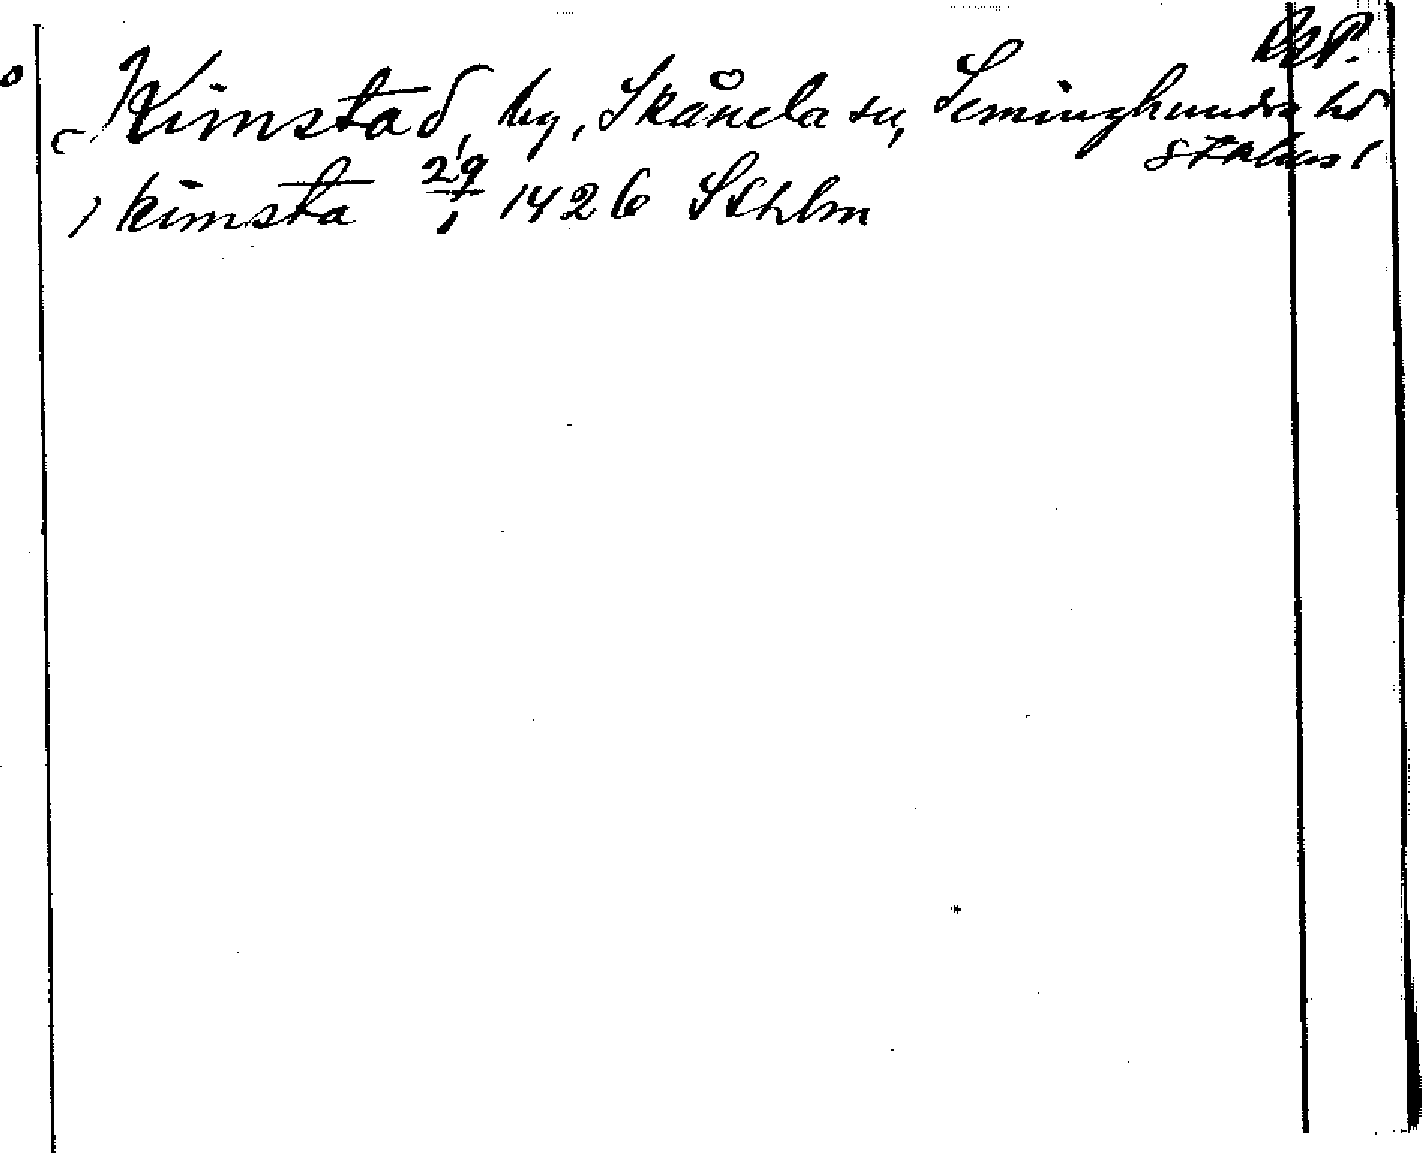 RAP.
Kimstad, by, Skånela sn, Seminghundra hd
Sthlms l
kimsta 29/1 1426 Sthlm